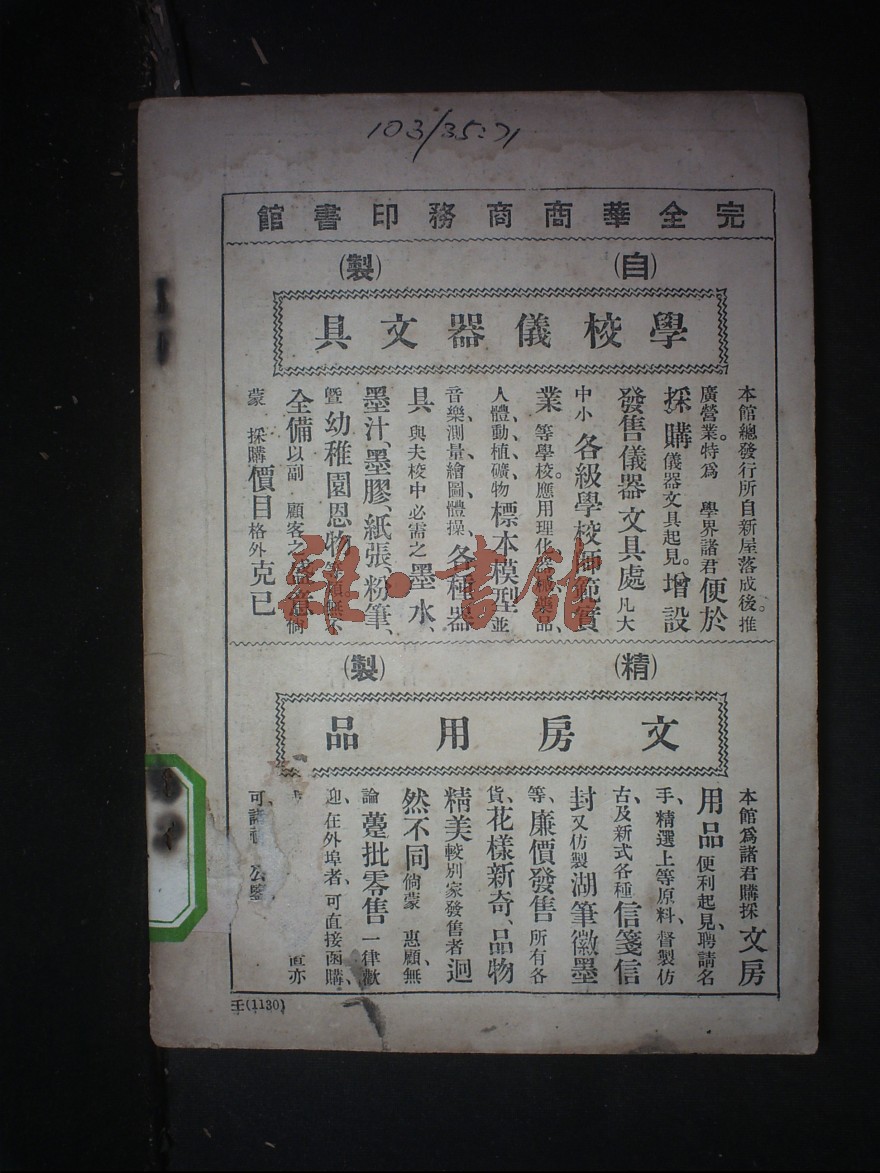 103/35:71
完全華商商務印書館
(自)(製)
學校儀器文具
本館總發行所自新屋落成後。推
廣營業。特爲 學界諸君便於
採購儀器文具起見。增設
發售儀器文具處凡大
中小各級學校師範實
業等學校。應用理化器械藥品、
人體、動植礦物標本模型並
音樂、測量、繪圖、體操、各種器
具與夫校中必需之墨水、
墨汁、墨膠、紙張、粉筆、
曁幼稚園恩物等類無不
全備以副 顧客之盛意倘
蒙 採購價目格外克已
(精)(製)
文房用品
本館爲諸君購採文房
用品便利起見、聘請名
手、精選上等原料、督製仿
古及新式各種信箋信
封又仿製湖筆徽墨
等、廉價發售所有各
貨、花樣新奇、品物
精美較別家發售者迥
然不同倘蒙 惠顧、無
論躉批零售一律歡
迎、在外埠者、可直接函購、
亦
可、諸 公鑒
壬(1130)
雜·書館